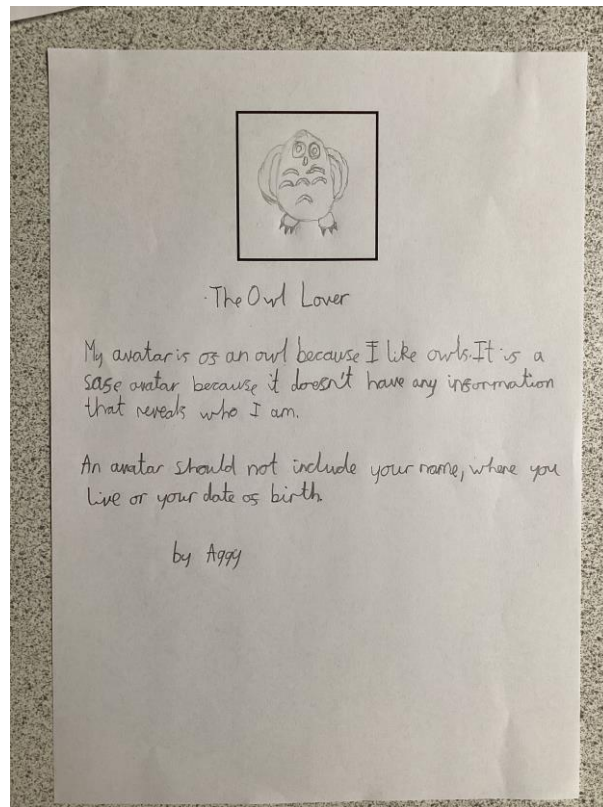 The Owl Lover
My avatar is of an owl because I like owls. It is a
safe avatar because it doesn't have any information
that reveals who I am.
An avatar should not include your name, where you
live or your date of birth.
by Aggy